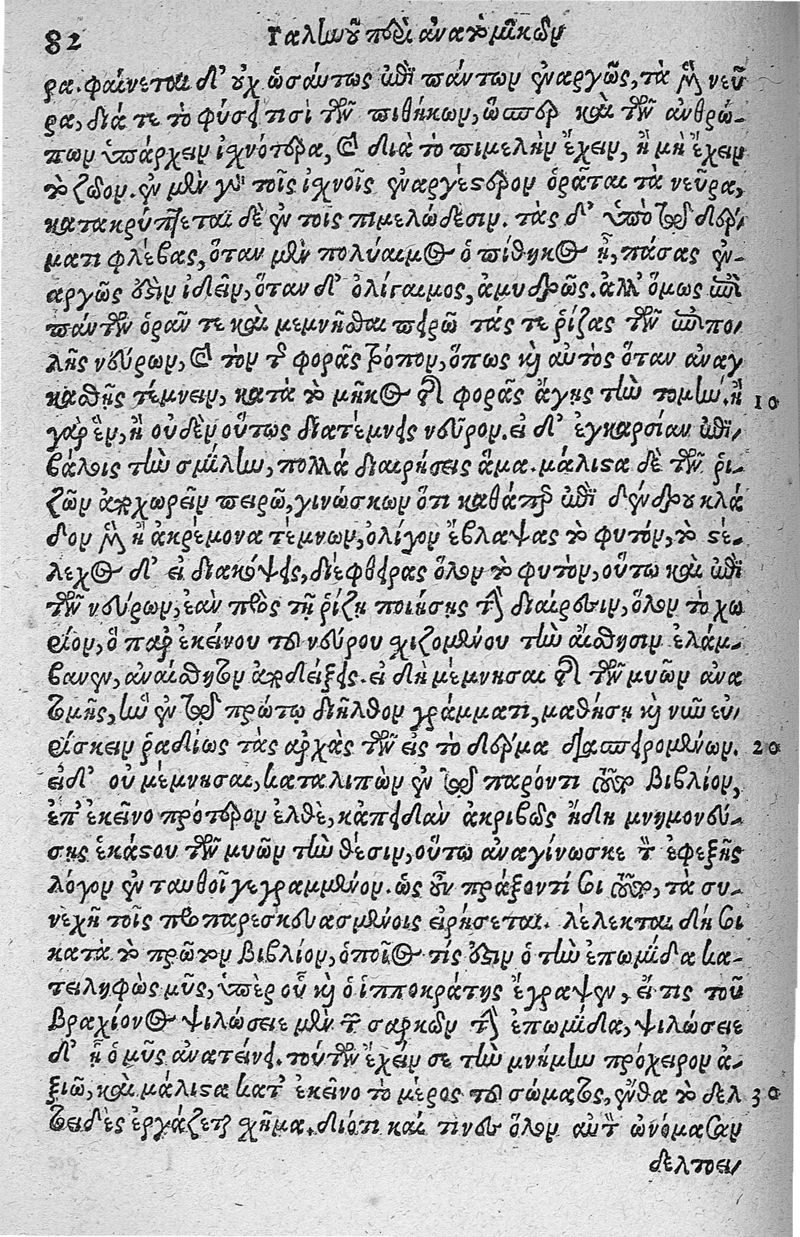 82 Γαλίωοῦ περὶ ἀνατομικῶν
ρα. φαίνεται δ’ οὐχ ὡσαύτως ἐπὶ πάντων ἐναργῶς, τὰ μὲν νεῦ
ρα, διά τε τὸ φύσει τισὶ τῶν πιθήκων, ὥσπερ καὶ τῶν ἀνθρώ-
πων ὑπάρχειν ἰχνότερα, καὶ διὰ τὸ πιμελὴν ἔχειν, ἢ μὴ ἔχειν
τὸ ζῶον. ἐν μὲν γὰρ τοῖς ἰχνοῖς ἐναργέστερον ὁρᾶται τὰ νεῦρα,
κατακρύπτεται δὲ ἐν τοῖς πιμελώδεσιν. τὰς δ’ ὑπὸ τῷ δέρ-
ματι φλέβας, ὅταν μὲν πολύαιμος ὁ πίθηκος ᾖ, πάσας ἐν-
αργῶς ἐστὶν ἰδεῖν, ὅταν δ’ ὀλίγαιμος, ἀμυδρῶς. ἀλλ’ ὅμως ἐπὶ
πάντων ὁρᾶν τε καὶ μεμνῆσθαι πειρῶ τάς τε ῥίζας τῶν ἐπιπο-
λῆς νεύρων, καὶ τὸν τῆς φορᾶς τρόπον, ὅπως καὶ αὐτὸς ὅταν ἀναγ
κασθῇς τέμνειν, κατὰ τὸ μῆκος τῆς φορᾶς ἄγῃς τὴν τομήν. ἢ 10
γὰρ ἓν, ἢ οὐδὲν οὕτως διατέμνεις νεῦρον. εἰ δ’ ἐγκαρσίαν ἐπι-
βάλοις τὴν σμίλην, πολλὰ διαιρήσεις ἅμα. μάλιστα δὲ τῶν ῥι-
ζῶν ἀποχωρεῖν πειρῶ, γινώσκων ὅτι καθάπερ ἐπὶ δένδρου κλά
δον μὲν ἢ ἀκρέμονα τέμνων, ὀλίγον ἔβλαψας τὸ φυτόν, τὸ στέ-
λεχος δ’ εἰ διακόψεις, διέφθειρας ὅλον τὸ φυτὸν, οὕτω καὶ ἐπὶ
τῶν νεύρων, ἐὰν πρὸς τῇ ῥίζῃ ποιήσῃς τὴν διαίρεσιν, ὅλον τὸ χω
ρίον, ὃ παρ’ ἐκείνου τοῦ νεύρου σχιζομένου τὴν αἴσθησιν ἐλάμ-
βανεν, ἀναίσθητον ἀποδείξεις. εἰ δὴ μέμνησαι τῆς τῶν μυῶν ἀνα
τομῆς, ἣν ἐν τῷ πρώτῳ διῆλθον γράμματι, μαθήσῃ καὶ νῦν εὑ-
ρίσκειν ῥαδίως τὰς ἀρχὰς τῶν εἰς τὸ δέρμα διασπειρομένων. 20
εἰ δ’ οὐ μέμνησαι, καταλιπὼν ἐν τῷ παρόντι τοῦτο βιβλίον,
ἐπ’ ἐκεῖνο πρότερον ἐλθὲ, κἀπειδὰν ἀκριβῶς ἤδη μνημονεύ-
σῃς ἑκάστου τῶν μυῶν τὴν θέσιν, οὕτω ἀναγίνωσκε τὸν ἐφεξῆς
λόγον ἐν ταυθοῖ γεγραμμένον. ὡς οὖν πράξοντί σοι τοῦτο, τὰ συ-
νεχῆ τοῖς προπαρεσκευασμένοις εἰρήσεται. λέλεκται δή σοι
κατὰ τὸ πρῶτον βιβλίον, ὁποῖος τίς ἐστιν ὁ τὴν ἐπωμίδα κα-
τειληφὼς μῦς, ὑπὲρ οὗ καὶ ὁ ἱπποκράτης ἔγραψεν, εἴ τις τοῦ
βραχίονος ψιλώσειε μὲν τῶν σαρκῶν τὴν ἐπωμίδα, ψιλώσειε
δ’ ᾗ ὁ μῦς ἀνατείνει. τούτων ἔχειν σε τὴν μνήμην πρόχειρον ἀ-
ξιῶ, καὶ μάλιστα κατ’ ἐκεῖνο τὸ μέρος τοῦ σώματος, ἔνθα τὸ δελ 30
τοειδὲς ἐργάζεται σχῆμα. διότι καί τινες ὅλον αὐτὸν ὠνόμασαν
δελτοει-